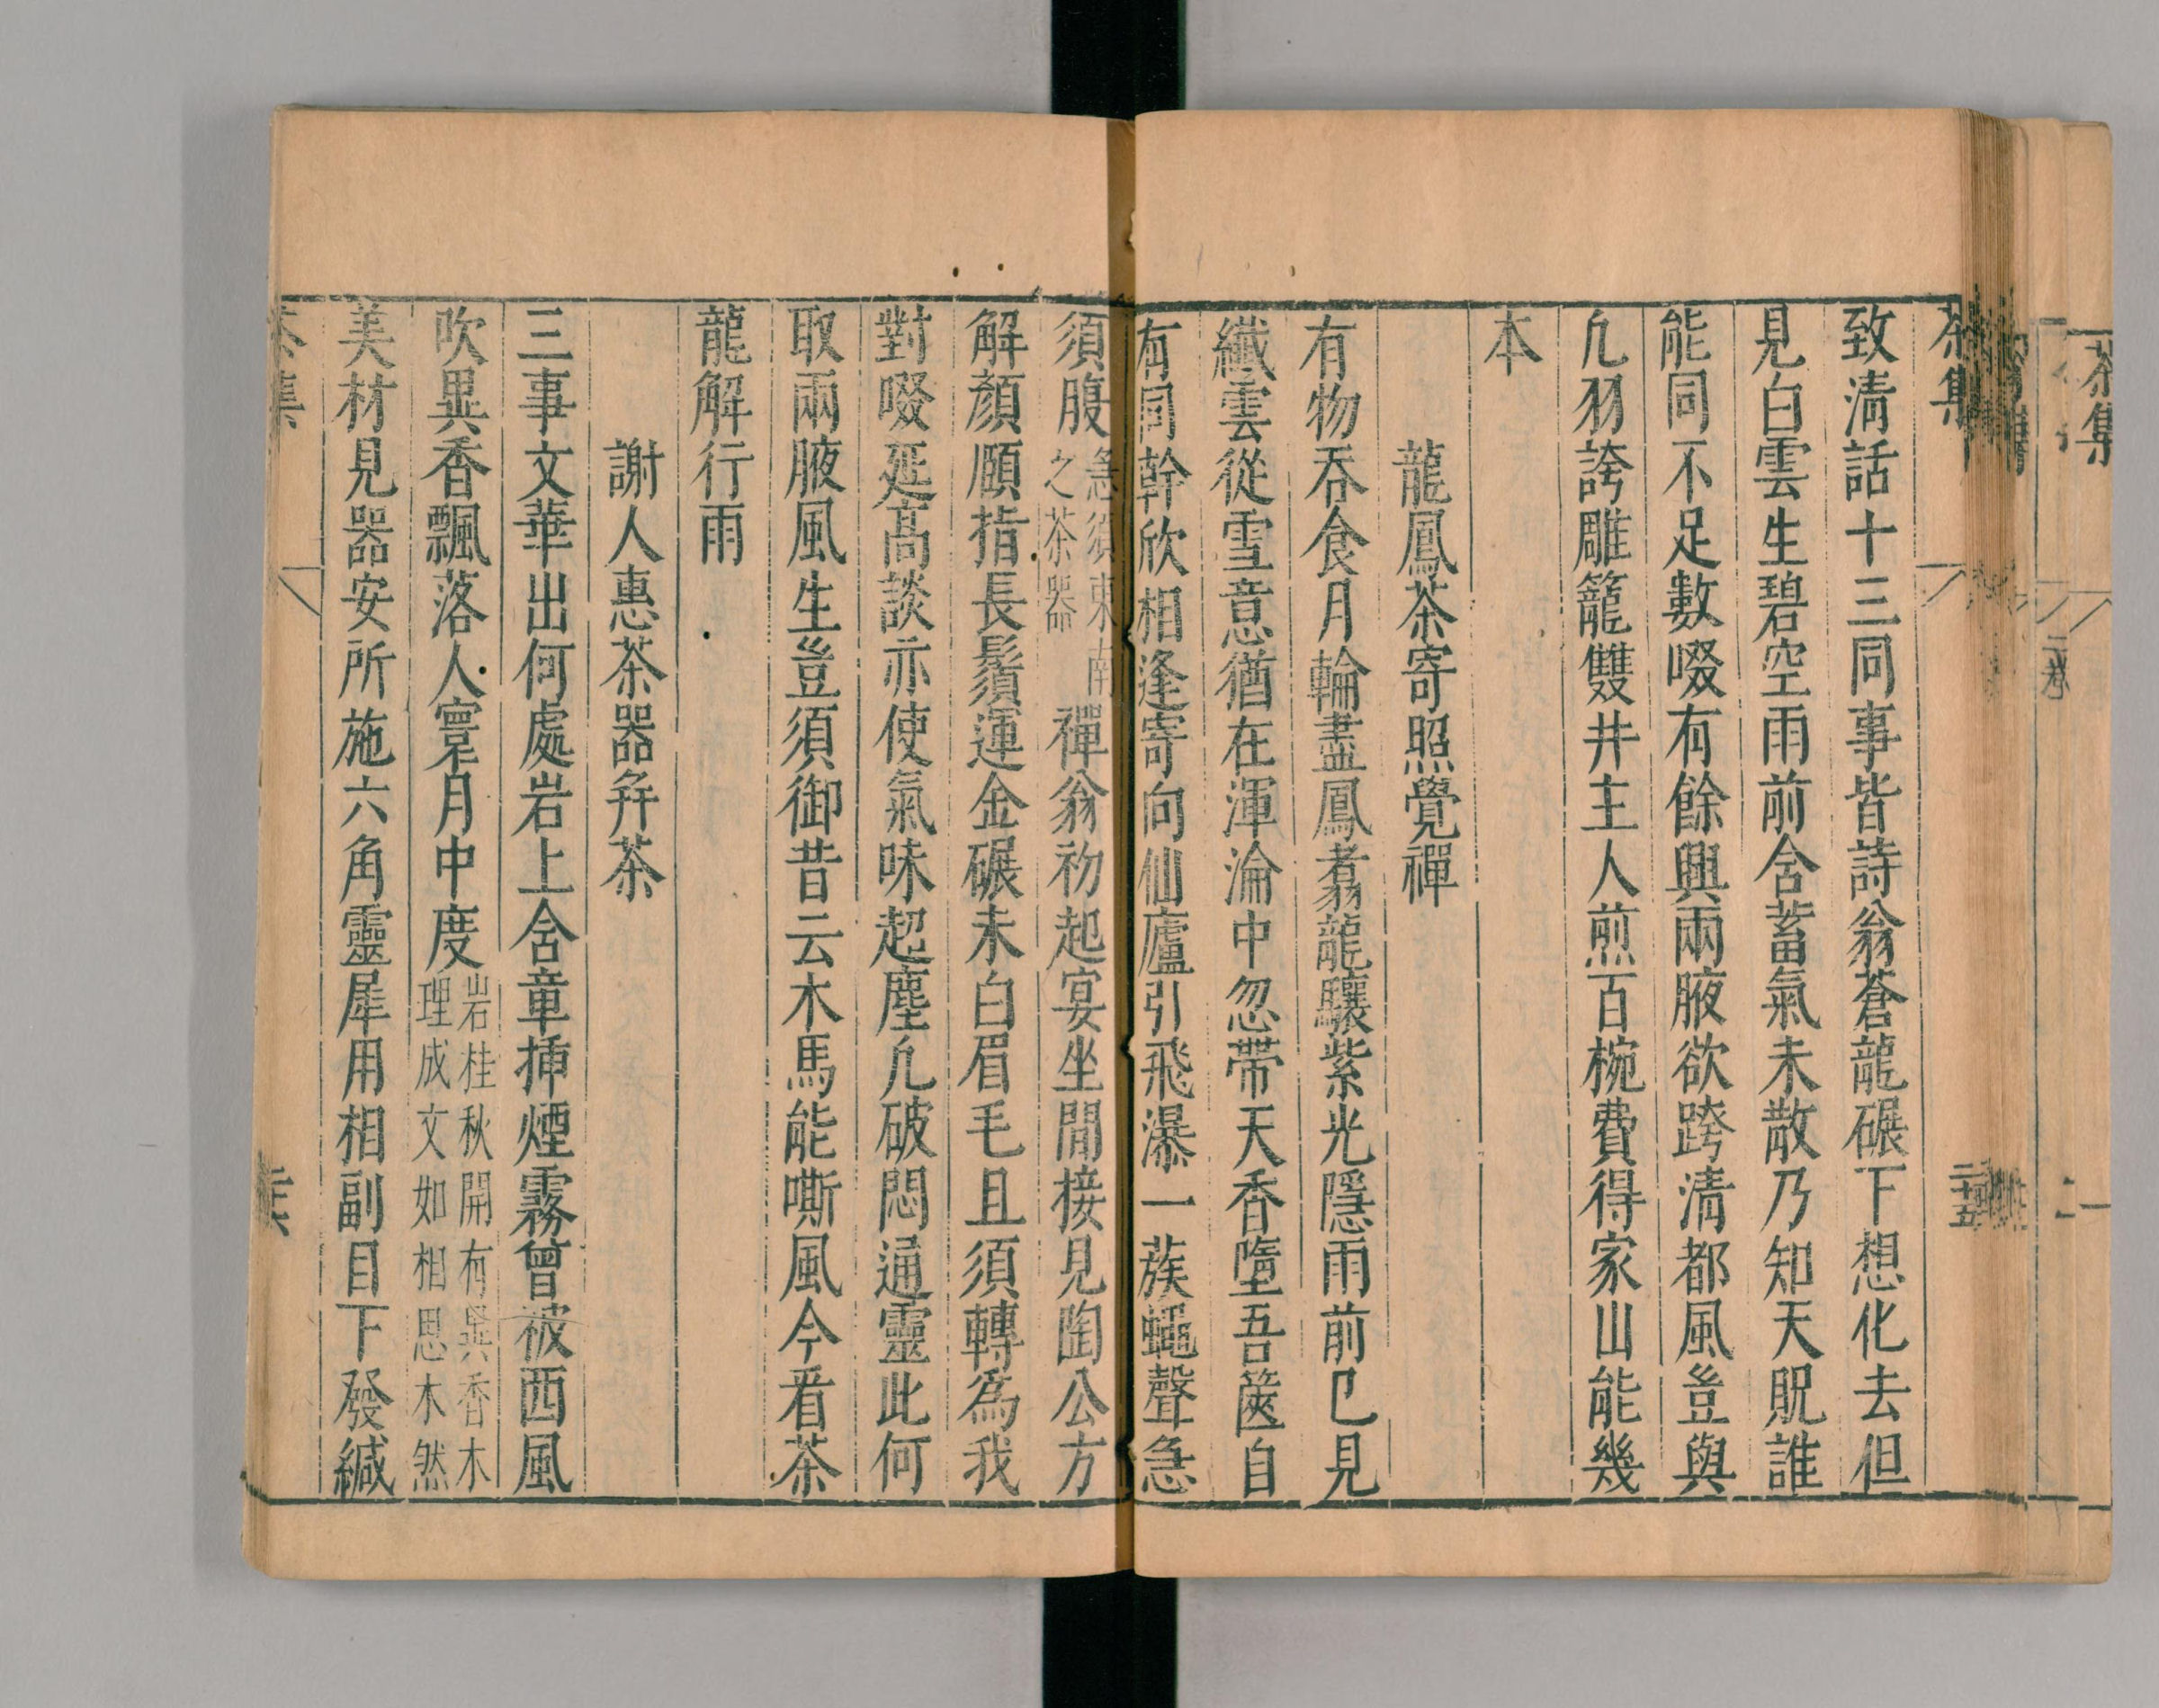 茶集
致清話十三同事皆詩翁蒼龍碾下想化去但
見白雲生碧空雨前含蓄氣未散乃知天貺誰
能同不足數啜有餘興兩腋欲跨清都風豈與
凢羽誇雕籠雙井主人煎百椀費得家山能幾
本
龍鳳茶寄照覺禪
有物吞食月輪盡鳳翥龍驤紫光隱雨前已見
纖雲從雪意猶在渾淪中忽帶天香墮吾篋自
有同幹欣相逢寄向仙廬引飛瀑一蔟蠅聲急
須腹急須東南之茶器禪翁初起宴坐間接見陶公方
解顏頤指長鬚運金碾未白眉毛且須轉為我
對啜延高談亦使氣味超塵凢破悶通靈此何
取兩腋風生豈須御昔云木馬能嘶風今看茶
龍解行雨
謝人惠茶器并茶
三事文華出何處岩上含章揷煙霧曾被西風
吹異香飄落人寰月中度岩桂秋開有異香木理成文如相思木然
美材見器安所施六角靈犀用相副目下發緘
茶集